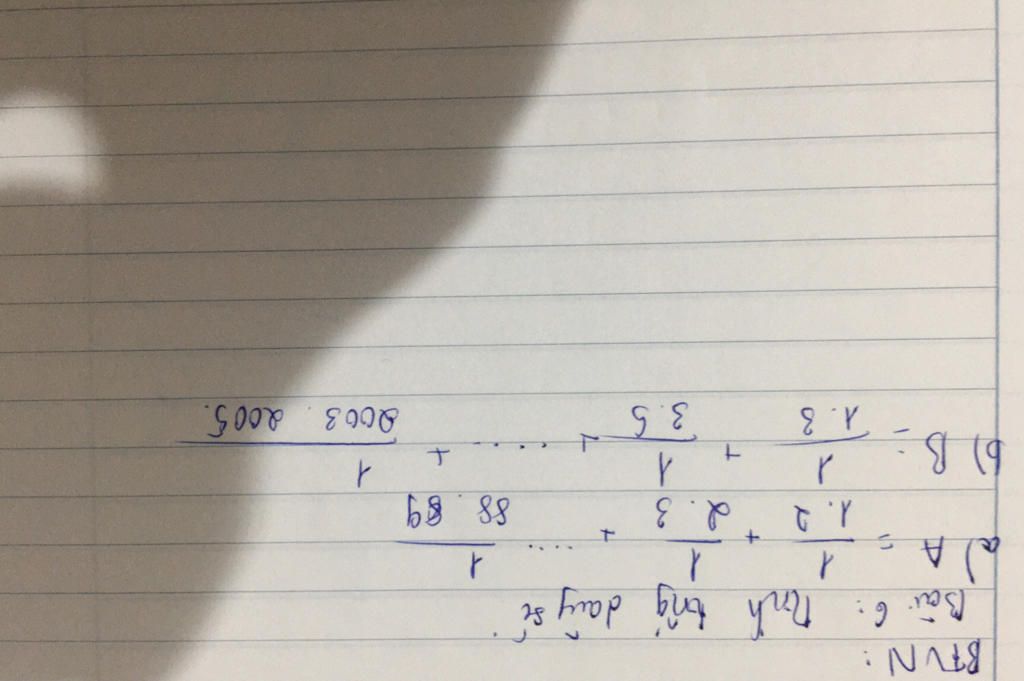 BTVN:
Bài 6: Tính tổng dãy số
a) A = 1/1.2 + 1/2.3 + .... 1/88.89
b) B = 1/1.3 + 1/3.5 + .... + 1/2003.2005.